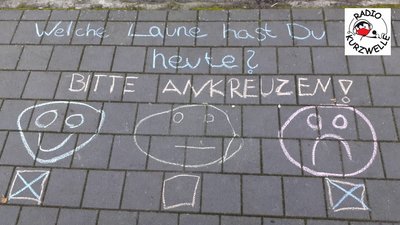 Welche Laune hast Du
heute?
BITTE ANKREUZEN!
RADIO
KURZWELLE